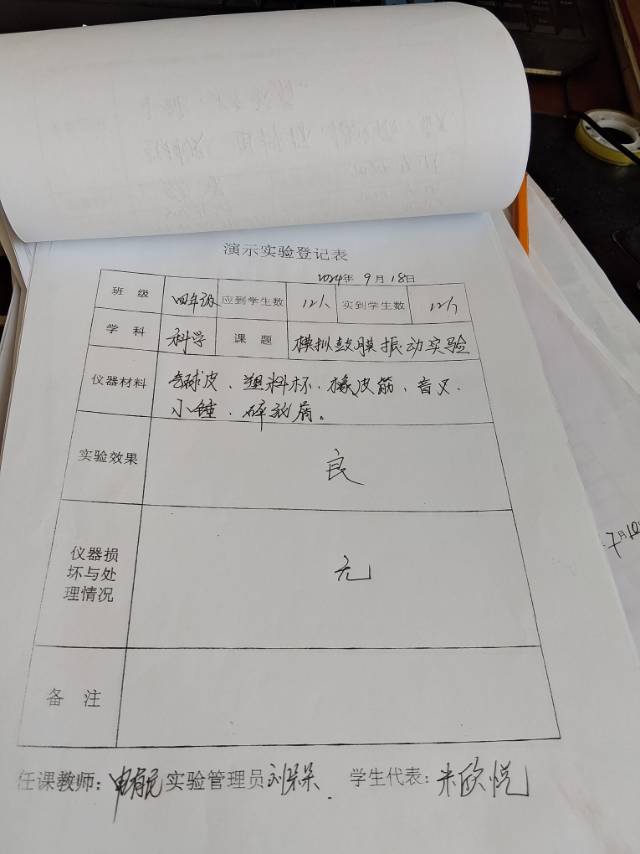 演示实验登记表
2024年 9月18日
班 级 四年级 应到学生数 12人 实到学生数 12人
学 科 科学 课 题 模拟鼓膜振动实验
仪器材料 气球皮、塑料杯、橡皮筋、音叉、
小锤、碎纸屑。
实验效果 良
仪器损
坏与处
理情况
无
备 注
任课教师： 实验管理员 学生代表：朱欣悦
7月